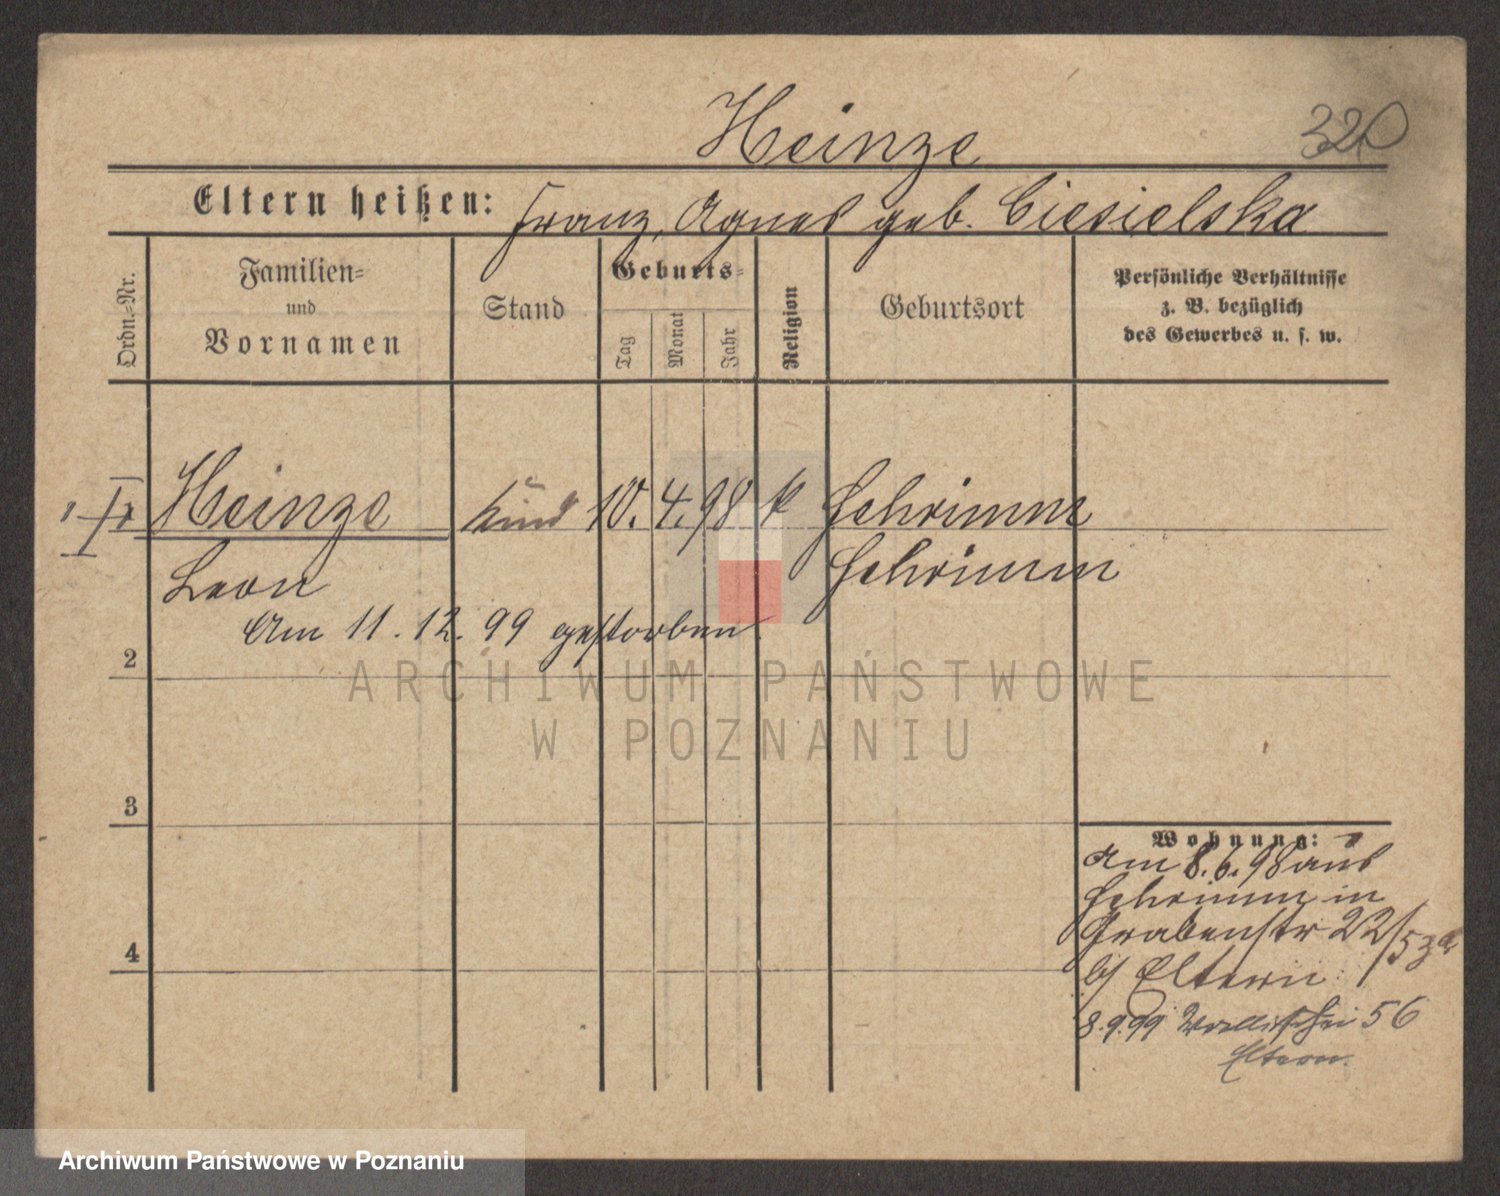 Heinze
320
Eltern heißen: Franz, Agnes geb. Ciesielska
Ordn.-Nr.
Familien-
und
Vornamen
Stand
Geburts-
Tag
Monat
Jahr
Religion
Geburtsort
Persönliche Verhältnisse
z. B. bezüglich
des Gewerbes u. s. w.
Heinze Kind 10. 4. 98 k Schrimm
Leon Schrimm
Am 11. 12. 99 gestorben.
2
ARCHIWUM PAŃSTWOWE
W POZNANIU
3
Wohnung:
Am 8. 6. 98 aus
Schrimm in
Grabenstr 22/23a
b/ Eltern
4
8.9.99 Wallischei 56
Eltern.
Archiwum Państwowe w Poznaniu